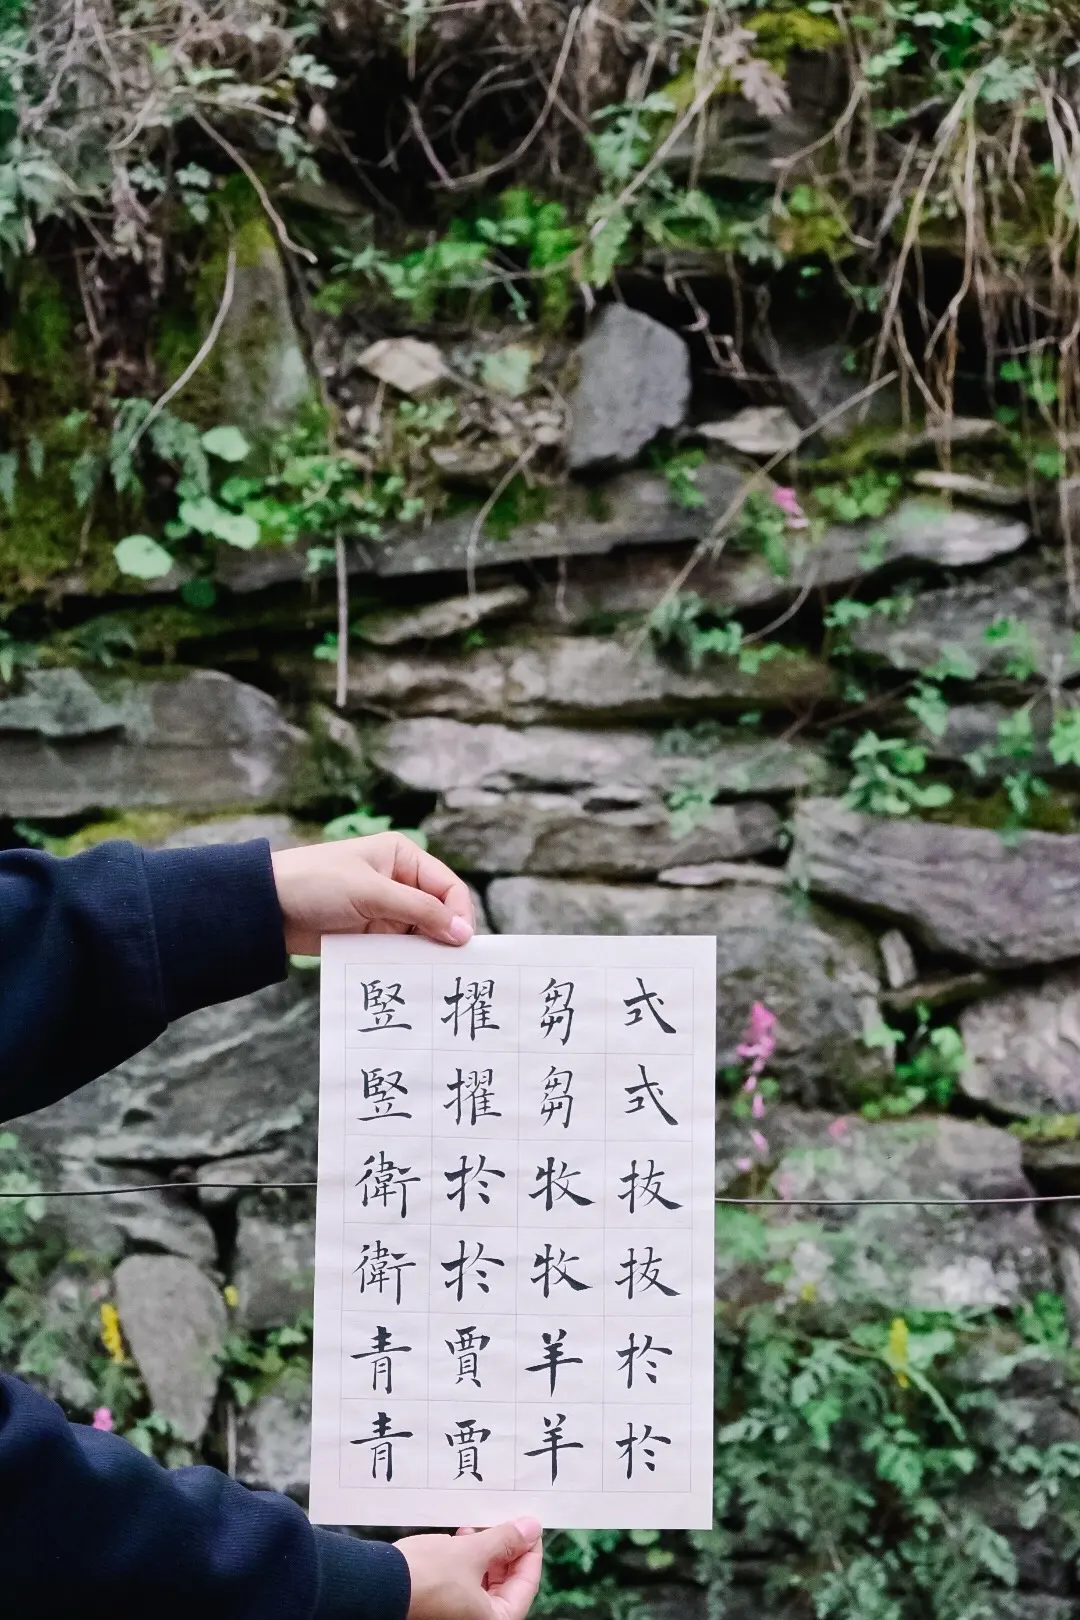 式式拔拔於於
芻芻牧牧羊羊
擢擢於於賈賈
竪竪衛衛青青